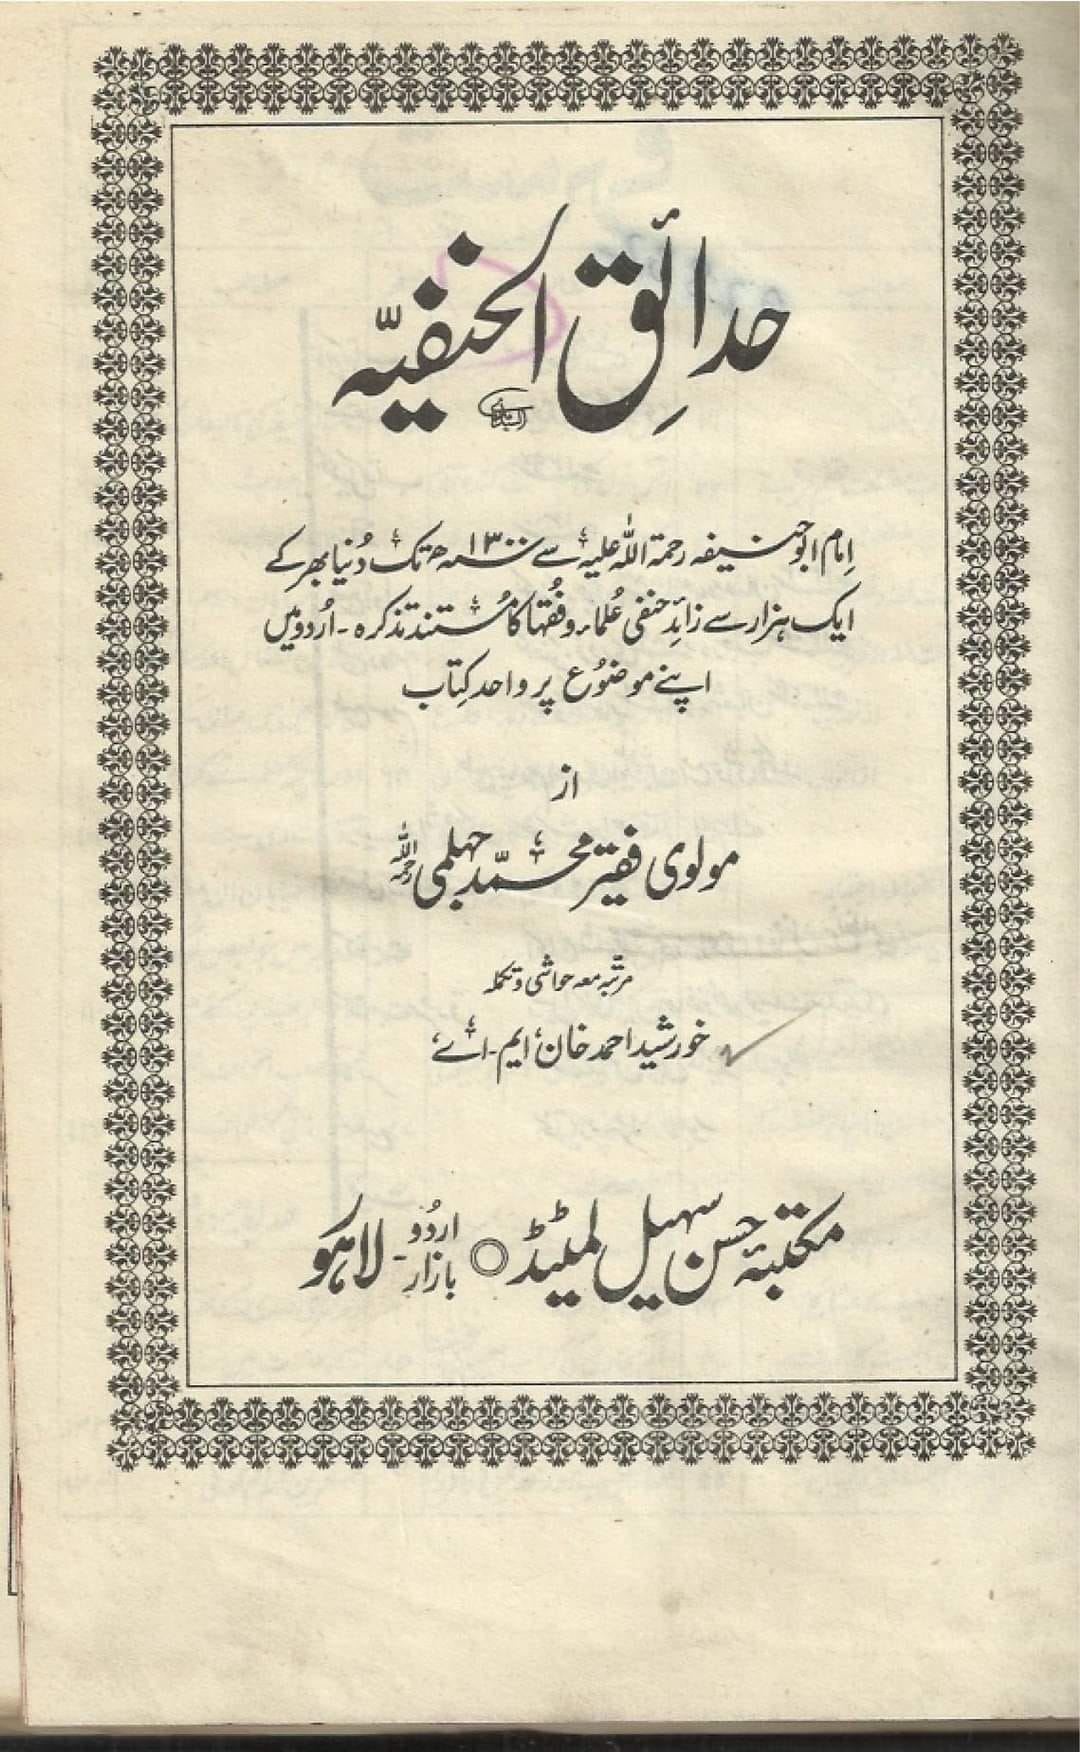 حدائق الحنفیہ
امام ابوحنیفہ رحمۃ اللہ علیہ سے ۱۳۰۰ھ تک دُنیا بھر کے
ایک ہزار سے زائد حنفی عُلماء و فُقہا کا مُستند تذکرہ - اُردو میں
اپنے موضوع پر واحد کتاب
از
مولوی فقیر محمّد جہلمی رحمہ اللہ
مرتبہ معہ حواشی و تکملہ
خورشید احمد خان، ایم - اے،
مکتبۂ حسن سہیل لمٹیڈ ○ اردُو بازار - لاہور